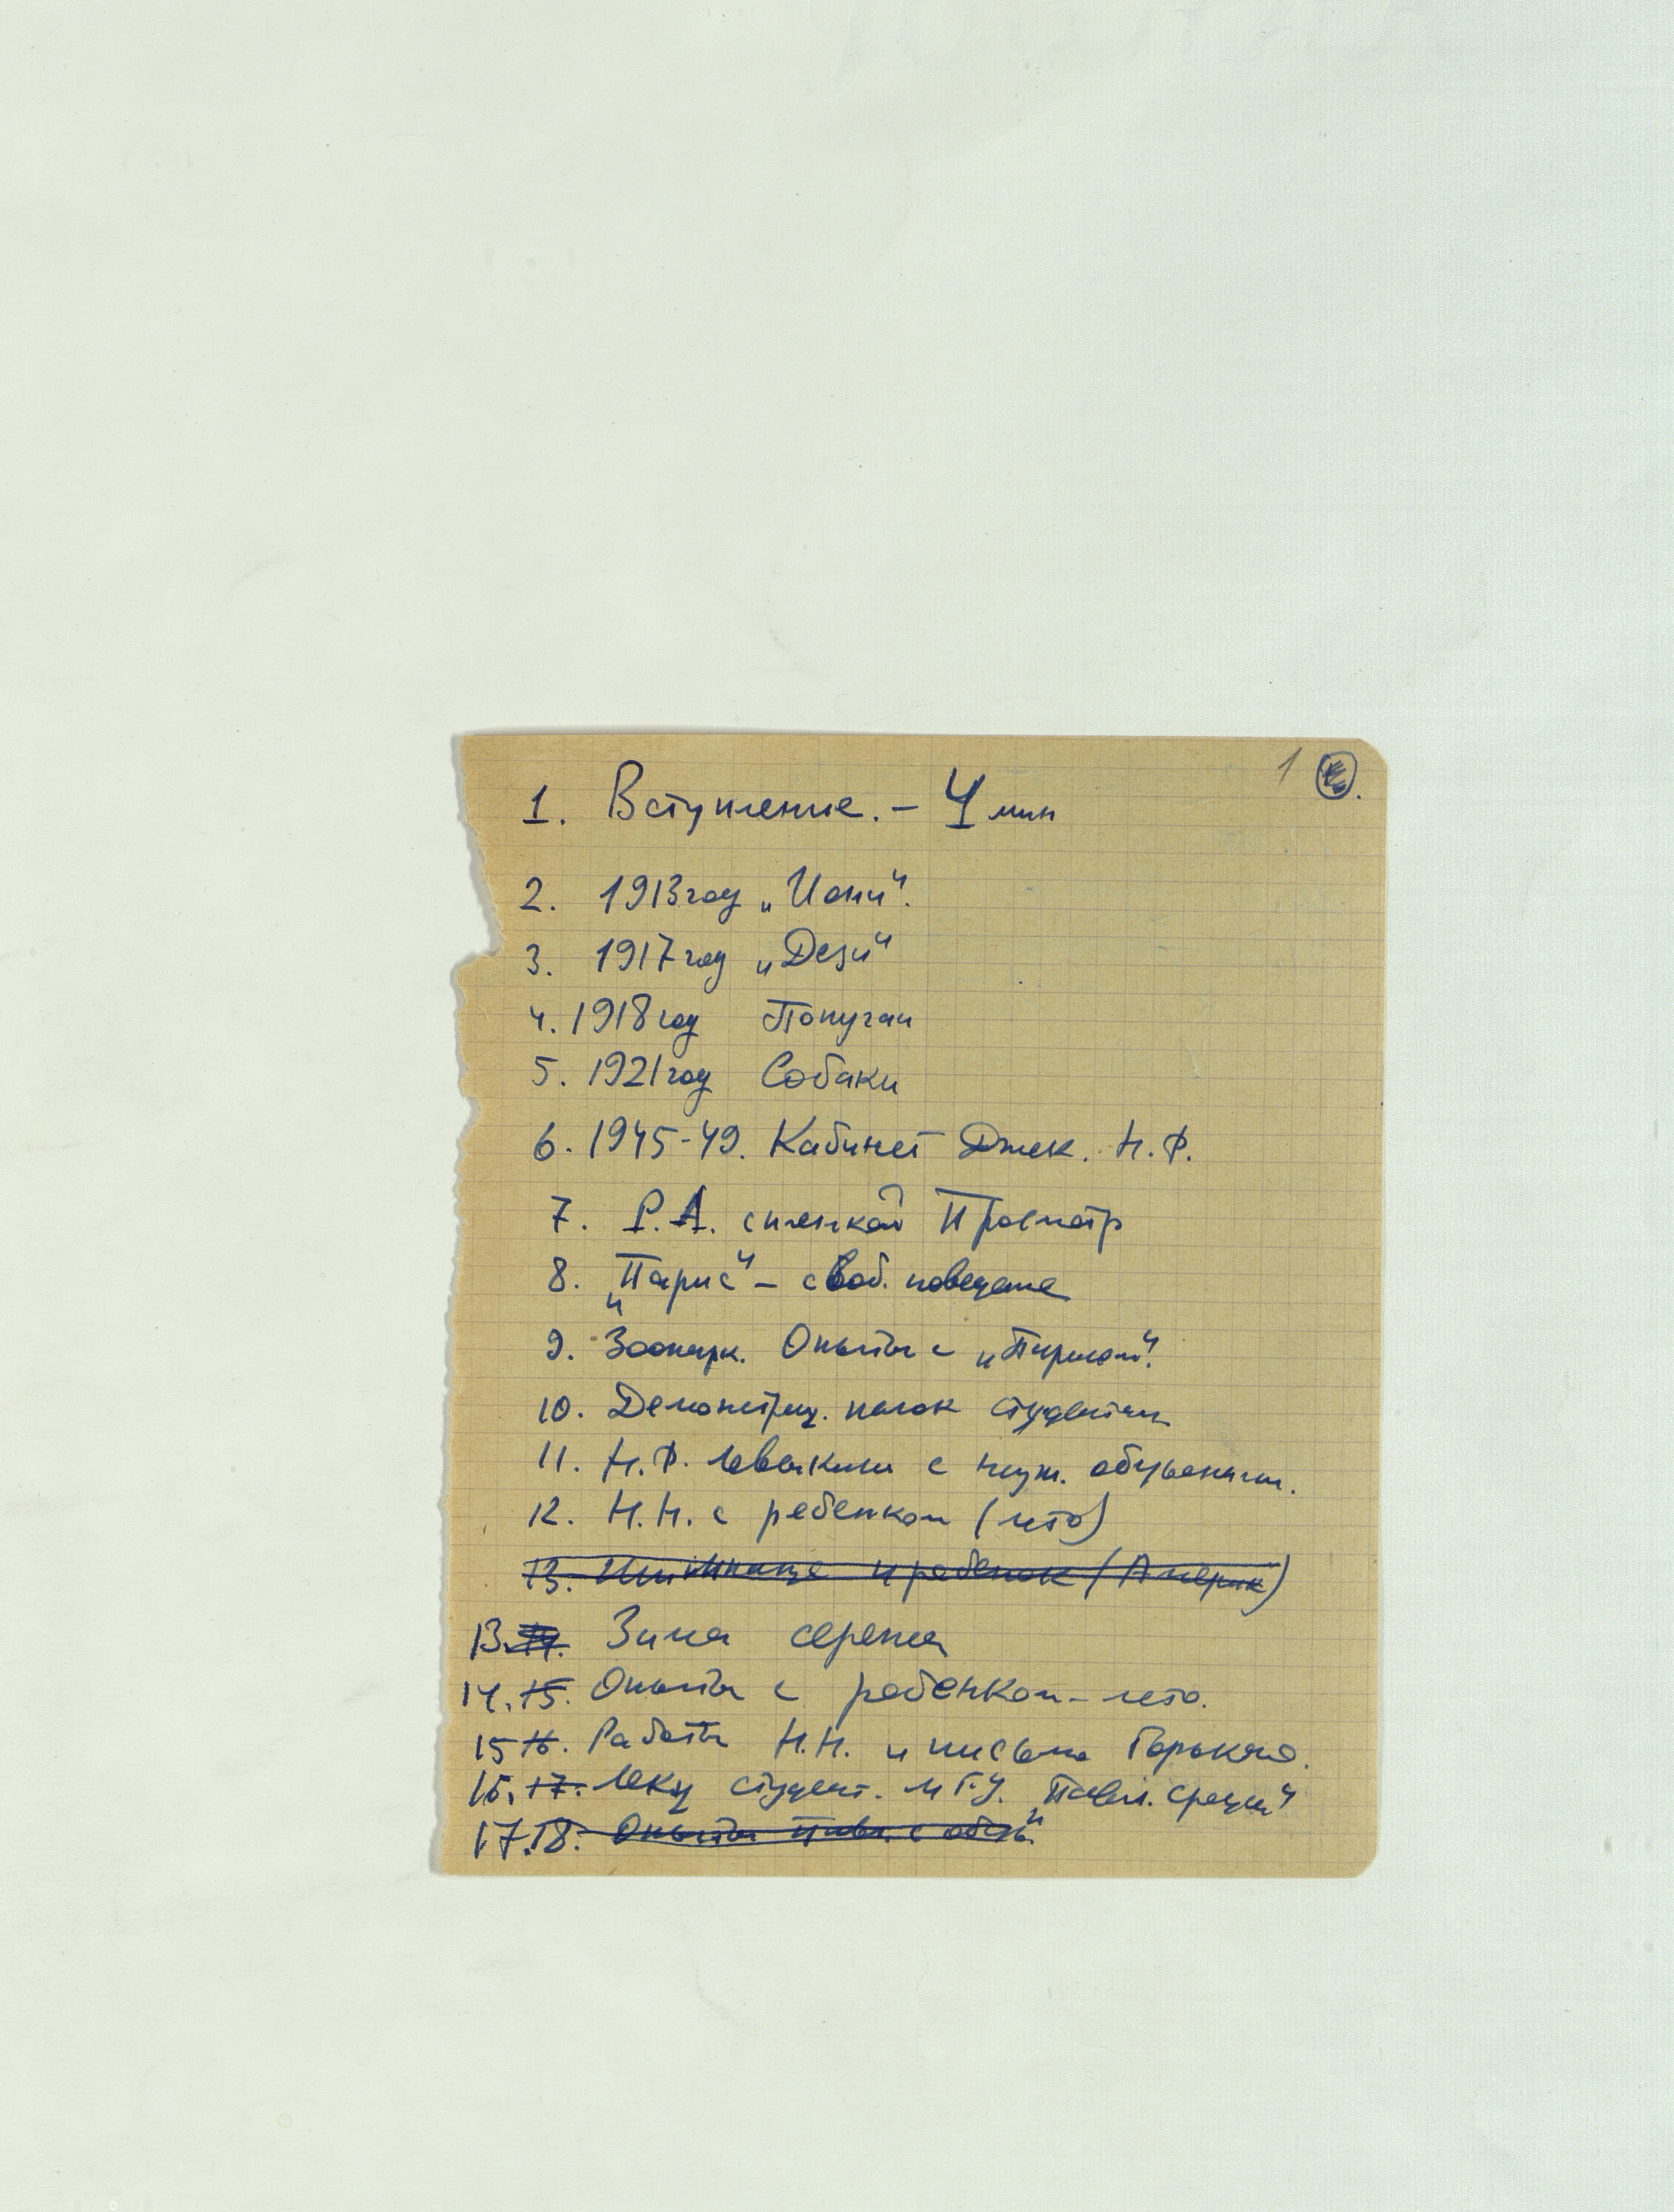 1
1. Вступление. – 4 мин
2. 1913 год „Иони".
3. 1917 год „Дези"
4. 1918 год Попугаи
5. 1921 год Собаки
6. 1945-49. Кабинет Н.Ф.
7. Р.А. с пленкой Просмотр
8. „Парис" – своб. поведение
9. Зоопарк. Опыты с „Парисом".
10. Демонстрац. студентам
11. Н.Ф. с обезьянами.
12. Н.Н. с ребенком (лето)
13. и ребенок (Америк)
13. 14. Зима
14. 15. Опыты с ребенком – лето.
15 16. Работы Н.Н. и письма Горького.
16. 17. студент. МГУ. „
17. 18. Опыты с